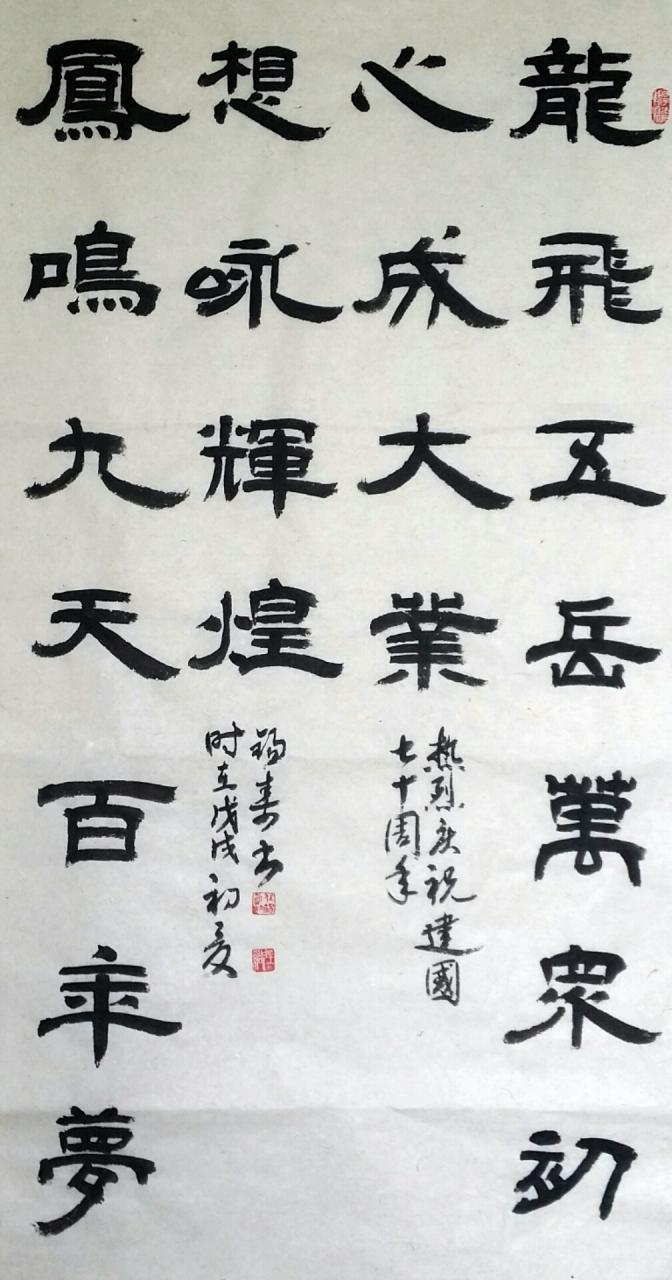 龍飛五岳萬眾初
心成大業
热烈庆祝建國
七十周年
鳳鳴九天百年夢
想咏輝煌
錫寿书
时在戊戌初夏